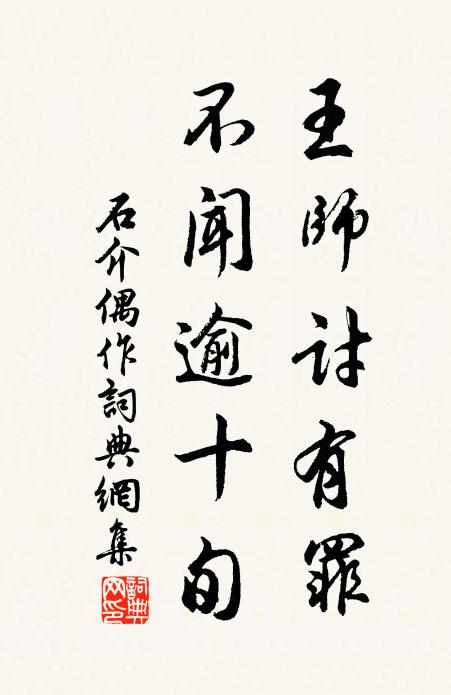 王師討有罪
不聞逾十旬
石介偶作詞典網集
詞典网印